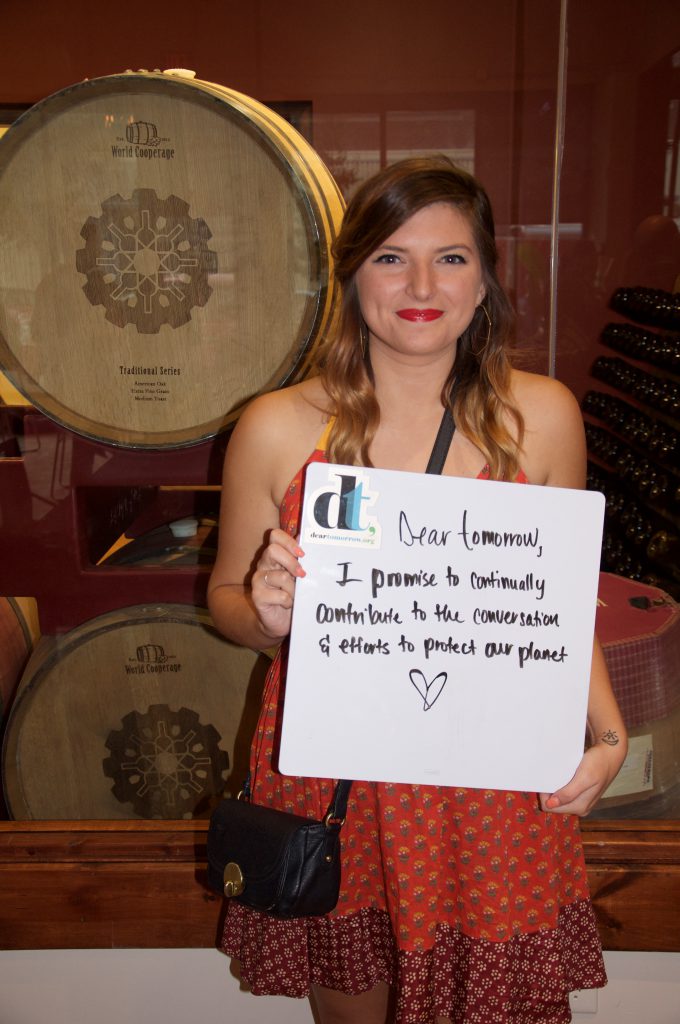 World Cooperage
Traditional Series
American Oak
Extra Fine Grain
Medium Toast
dt,
deartomorrow.org
Dear tomorrow,
I promise to continually
contribute to the conversation
& efforts to protect our planet
World Cooperage